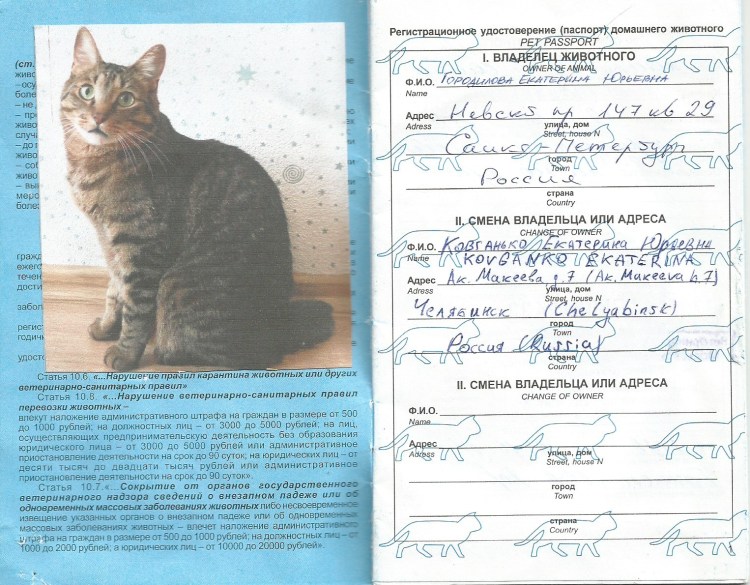 (ст.
живо
– осу
боле
– не
– пр
живо
случ
– до
живо
– со
живо
– вы
меро
боле
гражд
ежего
течен
дости
забол
регис
годич
удост
Статья 10.6. «...Нарушение правил карантина животных или других
ветеринарно-санитарных правил»
Статья 10.8. «...Нарушение ветеринарно-санитарных правил
перевозки животных –
влекут наложение административного штрафа на граждан в размере от 500
до 1000 рублей; на должностных лиц – от 3000 до 5000 рублей; на лиц,
осуществляющих предпринимательскую деятельность без образования
юридического лица – от 3000 до 5000 рублей или административное
приостановление деятельности на срок до 90 суток; на юридических лиц – от
десяти тысяч до двадцати тысяч рублей или административное
приостановление деятельности на срок до 90 суток».
Статья 10.7.«...Сокрытие от органов государственного
ветеринарного надзора сведений о внезапном падеже или об
одновременных массовых заболеваниях животных либо несвоевременное
извещение указанных органов о внезапном падеже или об одновременных
массовых заболеваниях животных – влечет наложение административного
штрафа на граждан в размере от 500 до 1000 рублей; на должностных лиц – от
1000 до 2000 рублей; а юридических лиц – от 10000 до 20000 рублей».
Регистрационное удостоверение (паспорт) домашнего животного
PET PASSPORT
I. ВЛАДЕЛЕЦ ЖИВОТНОГО
OWNER OF ANIMAL
Ф.И.О. Городилова Екатерина Юрьевна
Name
Адрес Невский пр 147 кв 29
Adress улица, дом
Street, house N
Санкт-Петербург
город
Town
Россия
страна
Country
II. СМЕНА ВЛАДЕЛЬЦА ИЛИ АДРЕСА
CHANGE OF OWNER
Ф.И.О. Ковганько Екатерина Юрьевна
Name KOVGANKO EKATERINA
Адрес Ак. Макеева д.7 (Ak. Makeeva h.7)
Adress улица, дом
Street, house N
Челябинск (Chelyabinsk)
город
Town
Россия (Russia)
страна
Country
II. СМЕНА ВЛАДЕЛЬЦА ИЛИ АДРЕСА
CHANGE OF OWNER
Ф.И.О.
Name
Адрес
Adress улица, дом
Street, house N
город
Town
страна
Country